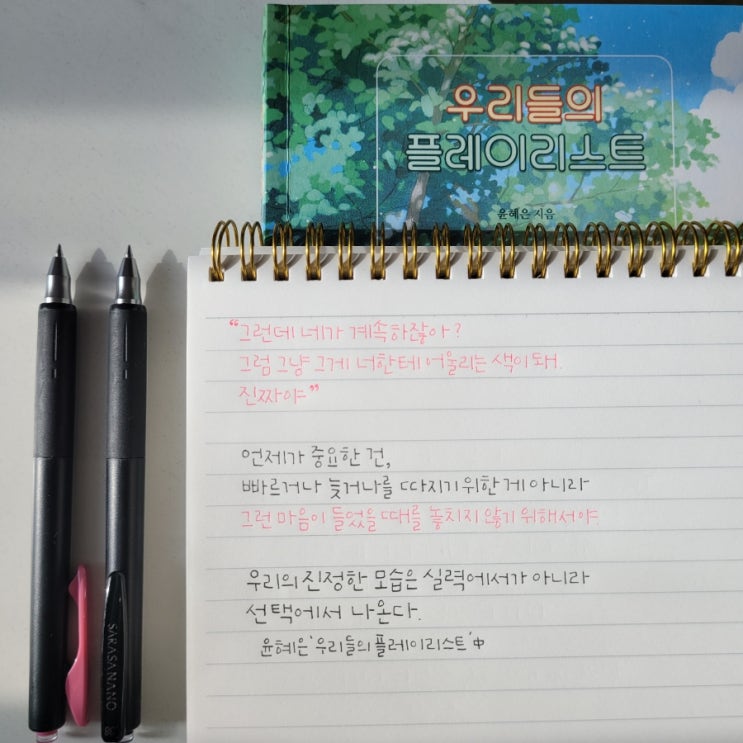 우리들의
플레이리스트
윤혜은 지음
"그런데 네가 계속하잖아?
그럼 그냥 그게 너한테 어울리는 색이 돼.
진짜야"
언제가 중요한 건,
빠르거나 늦거나를 따지기 위한 게 아니라
그런 마음이 들었을 때를 놓치지 않기 위해서야.
우리의 진정한 모습은 실력에서가 아니라
선택에서 나온다.
윤혜은 '우리들의 플레이리스트' 中
SARASA NANO